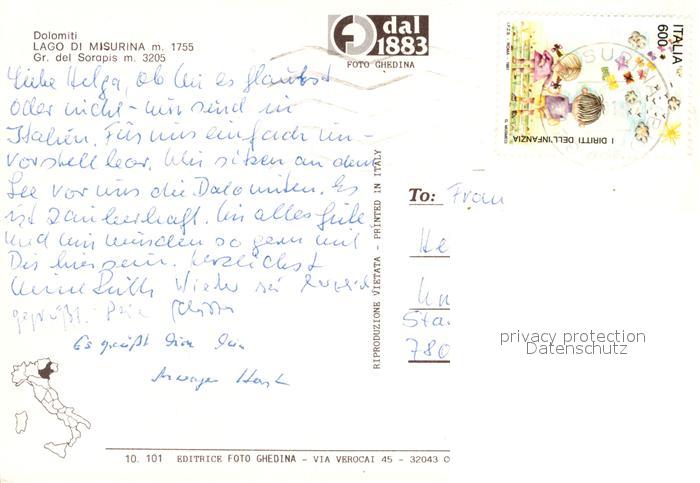 Dolomiti
LAGO DI MISURINA m. 1755
Gr. del Sorapis m. 3205
dal
1883
FOTO GHEDINA
ITALIA
600
I DIRITTI DELL'INFANZIA
Liebe Helga, ob Du es glaubst
oder nicht - wir sind in
Italien. Für uns einfach un-
vorstellbar. Wir sitzen an dem
See vor uns die Dolomiten. Es
ist zauberhaft. Dir alles Gute
und wir würden so gern mit
Dir hier sein. Herzlichst
Deine Ruth Wieder sei herzlich
gegrüßt. Dein
Es grüßt Dich Dein
Horst
To: Frau
He
Un
Sta
780
privacy protection
Datenschutz
RIPRODUZIONE VIETATA - PRINTED IN ITALY
10. 101 EDITRICE FOTO GHEDINA - VIA VEROCAI 45 - 32043 C